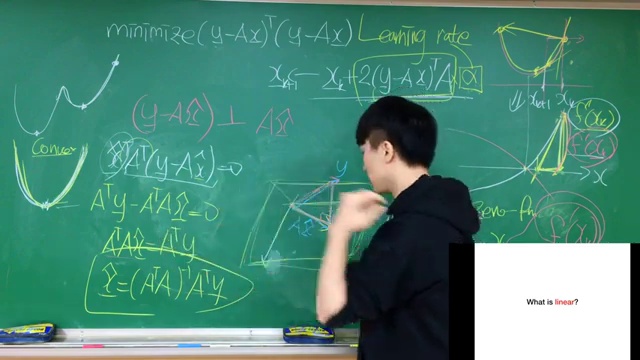 minimize (y-Ax)ᵀ(y-Ax)
Learning rate
x_{k+1} ← x_k + 2(y-Ax)ᵀA α
(y-Ax̂) ⊥ Ax̂
Convex
x̂ᵀAᵀ(y-Ax̂)=0
Aᵀy-AᵀAx̂=0
AᵀAx̂=Aᵀy
x̂=(AᵀA)⁻¹Aᵀy
y
Ax̂
x_{k+1} x_k
f(x_k)
f'(x_k)
x
What is linear?